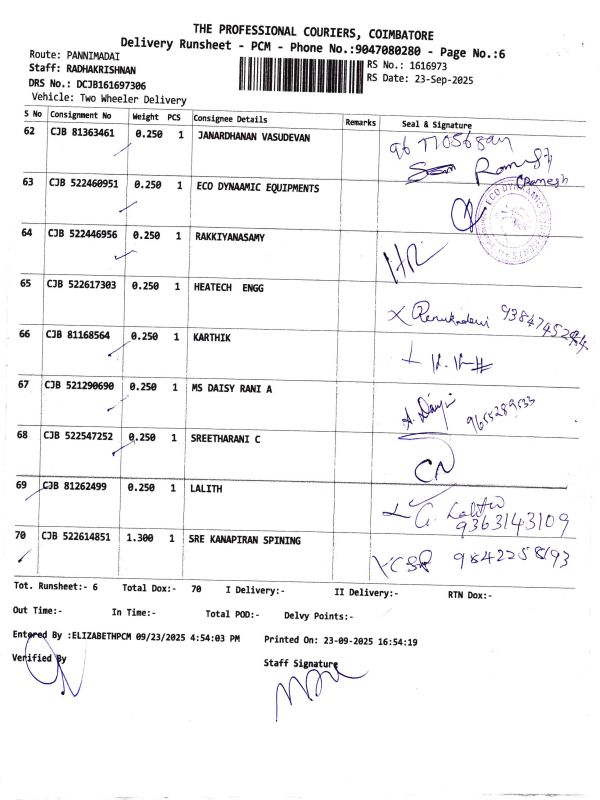 THE PROFESSIONAL COURIERS, COIMBATORE
Delivery Runsheet - PCM - Phone No.:9047080280 - Page No.:6
Route: PANNIMADAI
RS No.: 1616973
Staff: RADHAKRISHNAN
RS Date: 23-Sep-2025
DRS No.: DCJB161697306
Vehicle: Two Wheeler Delivery
S No Consignment No Weight PCS Consignee Details Remarks Seal & Signature
62 CJB 81363461 0.250 1 JANARDHANAN VASUDEVAN
Ramesh
63 CJB 522460951 0.250 1 ECO DYNAAMIC EQUIPMENTS
64 CJB 522446956 0.250 1 RAKKIYANASAMY
65 CJB 522617303 0.250 1 HEATECH ENGG
Renukadevi
66 CJB 81168564 0.250 1 KARTHIK
67 CJB 521290690 0.250 1 MS DAISY RANI A
9655289533
68 CJB 522547252 0.250 1 SREETHARANI C
69 CJB 81262499 0.250 1 LALITH
9363143109
70 CJB 522614851 1.300 1 SRE KANAPIRAN SPINING
Tot. Runsheet:- 6 Total Dox:- 70 I Delivery:- II Delivery:- RTN Dox:-
Out Time:- In Time:- Total POD:- Delvy Points:-
Entered By :ELIZABETHPCM 09/23/2025 4:54:03 PM Printed On: 23-09-2025 16:54:19
Verified By Staff Signature